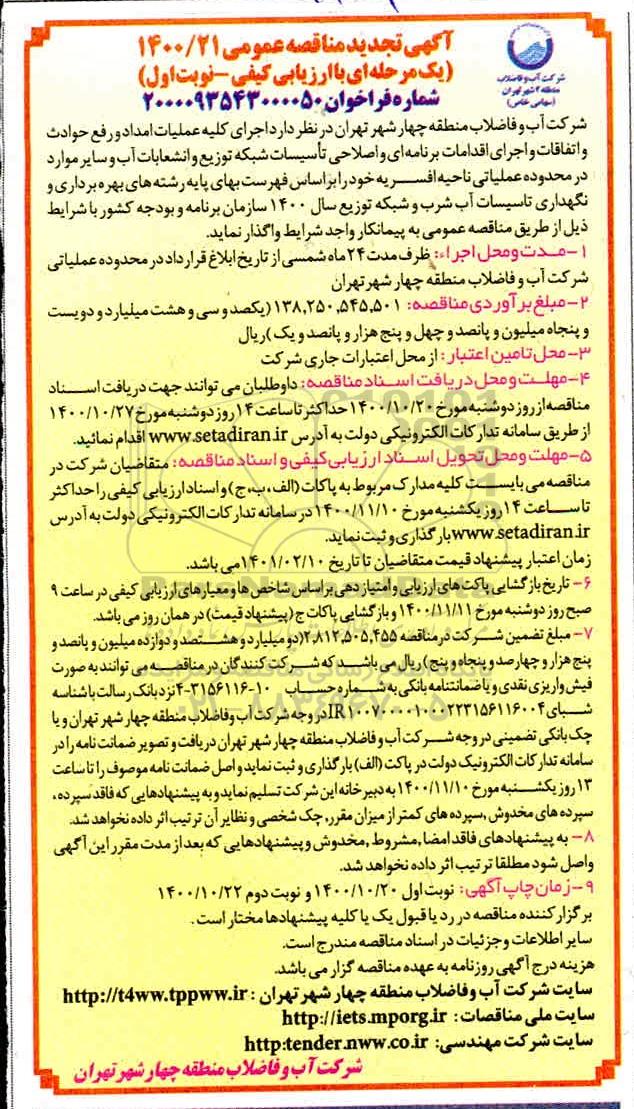 آگهی تجدید مناقصه عمومی ۱۴۰۰/۲۱
(یک مرحله ای با ارزیابی کیفی - نوبت اول)
شماره فراخوان ۲۰۰۰۰۹۳۵۴۳۰۰۰۰۵۰
شرکت آب و فاضلاب
منطقه ۴ شهر تهران
(سهامی خاص)
شرکت آب و فاضلاب منطقه چهار شهر تهران در نظر دارد اجرای کلیه عملیات امداد و رفع حوادث
و اتفاقات و اجرای اقدامات برنامه ای و اصلاحی تأسیسات شبکه توزیع و انشعابات آب و سایر موارد
در محدوده عملیاتی ناحیه افسریه خود را براساس فهرست بهای پایه رشته های بهره برداری و
نگهداری تاسیسات آب شرب و شبکه توزیع سال ۱۴۰۰ سازمان برنامه و بودجه کشور با شرایط
ذیل از طریق مناقصه عمومی به پیمانکار واجد شرایط واگذار نماید.
۱- مدت و محل اجراء: ظرف مدت ۲۴ ماه شمسی از تاریخ ابلاغ قرارداد در محدوده عملیاتی
شرکت آب و فاضلاب منطقه چهار شهر تهران
۲- مبلغ برآوردی مناقصه: ۱۳۸,۲۵۰,۵۴۵,۵۰۱ (یکصد و سی و هشت میلیارد و دویست
و پنجاه میلیون و پانصد و چهل و پنج هزار و پانصد و یک) ریال
۳- محل تامین اعتبار: از محل اعتبارات جاری شرکت
۴- مهلت و محل دریافت اسناد مناقصه: داوطلبان می توانند جهت دریافت اسناد
مناقصه از روز دوشنبه مورخ ۱۴۰۰/۱۰/۲۰ حداکثر تا ساعت ۱۴ روز دوشنبه مورخ ۱۴۰۰/۱۰/۲۷
از طریق سامانه تدارکات الکترونیکی دولت به آدرس www.setadiran.ir اقدام نمائید.
۵- مهلت و محل تحویل اسناد ارزیابی کیفی و اسناد مناقصه: متقاضیان شرکت در
مناقصه می بایست کلیه مدارک مربوط به پاکات (الف، ب، ج) و اسناد ارزیابی کیفی را حداکثر
تا ساعت ۱۴ روز یکشنبه مورخ ۱۴۰۰/۱۱/۱۰ در سامانه تدارکات الکترونیکی دولت به آدرس
www.setadiran.ir بارگذاری و ثبت نماید.
زمان اعتبار پیشنهاد قیمت متقاضیان تا تاریخ ۱۴۰۱/۰۲/۱۰ می باشد.
۶- تاریخ بازگشایی پاکت های ارزیابی و امتیاز دهی براساس شاخص ها و معیارهای ارزیابی کیفی در ساعت ۹
صبح روز دوشنبه مورخ ۱۴۰۰/۱۱/۱۱ و بازگشایی پاکات ج (پیشنهاد قیمت) در همان روز می باشد.
۷- مبلغ تضمین شرکت در مناقصه ۲،۸۱۲،۵۰۵،۴۵۵ (دو میلیارد و هشتصد و دوازده میلیون و پانصد و
پنج هزار و چهارصد و پنجاه و پنج) ریال می باشد که شرکت کنندگان در مناقصه می توانند به صورت
فیش واریزی نقدی و یا ضمانتنامه بانکی به شماره حساب ۱۰-۳۱۵۶۱۱۶-۴ نزد بانک رسالت با شناسه
شبای در وجه شرکت آب و فاضلاب منطقه چهار شهر تهران و یا
چک بانکی تضمینی در وجه شرکت آب و فاضلاب منطقه چهار شهر تهران دریافت و تصویر ضمانت نامه را در
سامانه تدارکات الکترونیک دولت در پاکت (الف) بارگذاری و ثبت نماید و اصل ضمانت نامه موصوف را تا ساعت
۱۳ روز یکشنبه مورخ ۱۴۰۰/۱۱/۱۰ به دبیرخانه این شرکت تسلیم نماید و به پیشنهادهایی که فاقد سپرده،
سپرده های مخدوش، سپرده های کمتر از میزان مقرر، چک شخصی و نظایر آن ترتیب اثر داده نخواهد شد.
۸- به پیشنهادهای فاقد امضا، مشروط، مخدوش و پیشنهادهایی که بعد از مدت مقرر این آگهی
واصل شود مطلقا ترتیب اثر داده نخواهد شد.
۹- زمان چاپ آگهی: نوبت اول ۱۴۰۰/۱۰/۲۰ و نوبت دوم ۱۴۰۰/۱۰/۲۲
برگزار کننده مناقصه در رد یا قبول یک یا کلیه پیشنهادها مختار است.
سایر اطلاعات و جزئیات در اسناد مناقصه مندرج است.
هزینه درج آگهی روزنامه به عهده مناقصه گزار می باشد.
سایت شرکت آب و فاضلاب منطقه چهار شهر تهران: http://t4ww.tppww.ir
سایت ملی مناقصات: http://iets.mporg.ir
سایت شرکت مهندسی: http:tender.nww.co.ir
شرکت آب و فاضلاب منطقه چهار شهر تهران